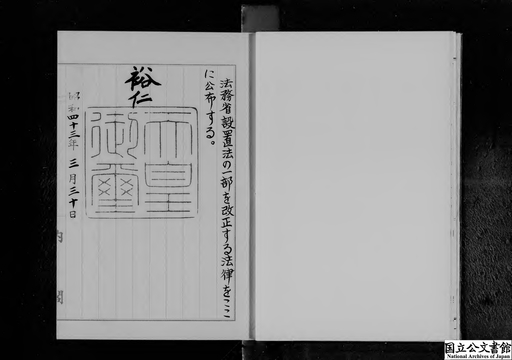 法務省設置法の一部を改正する法律をここ
に公布する。
裕仁
天皇
御璽
昭和四十三年三月三十日
内閣
国立公文書館
National Archives of Japan